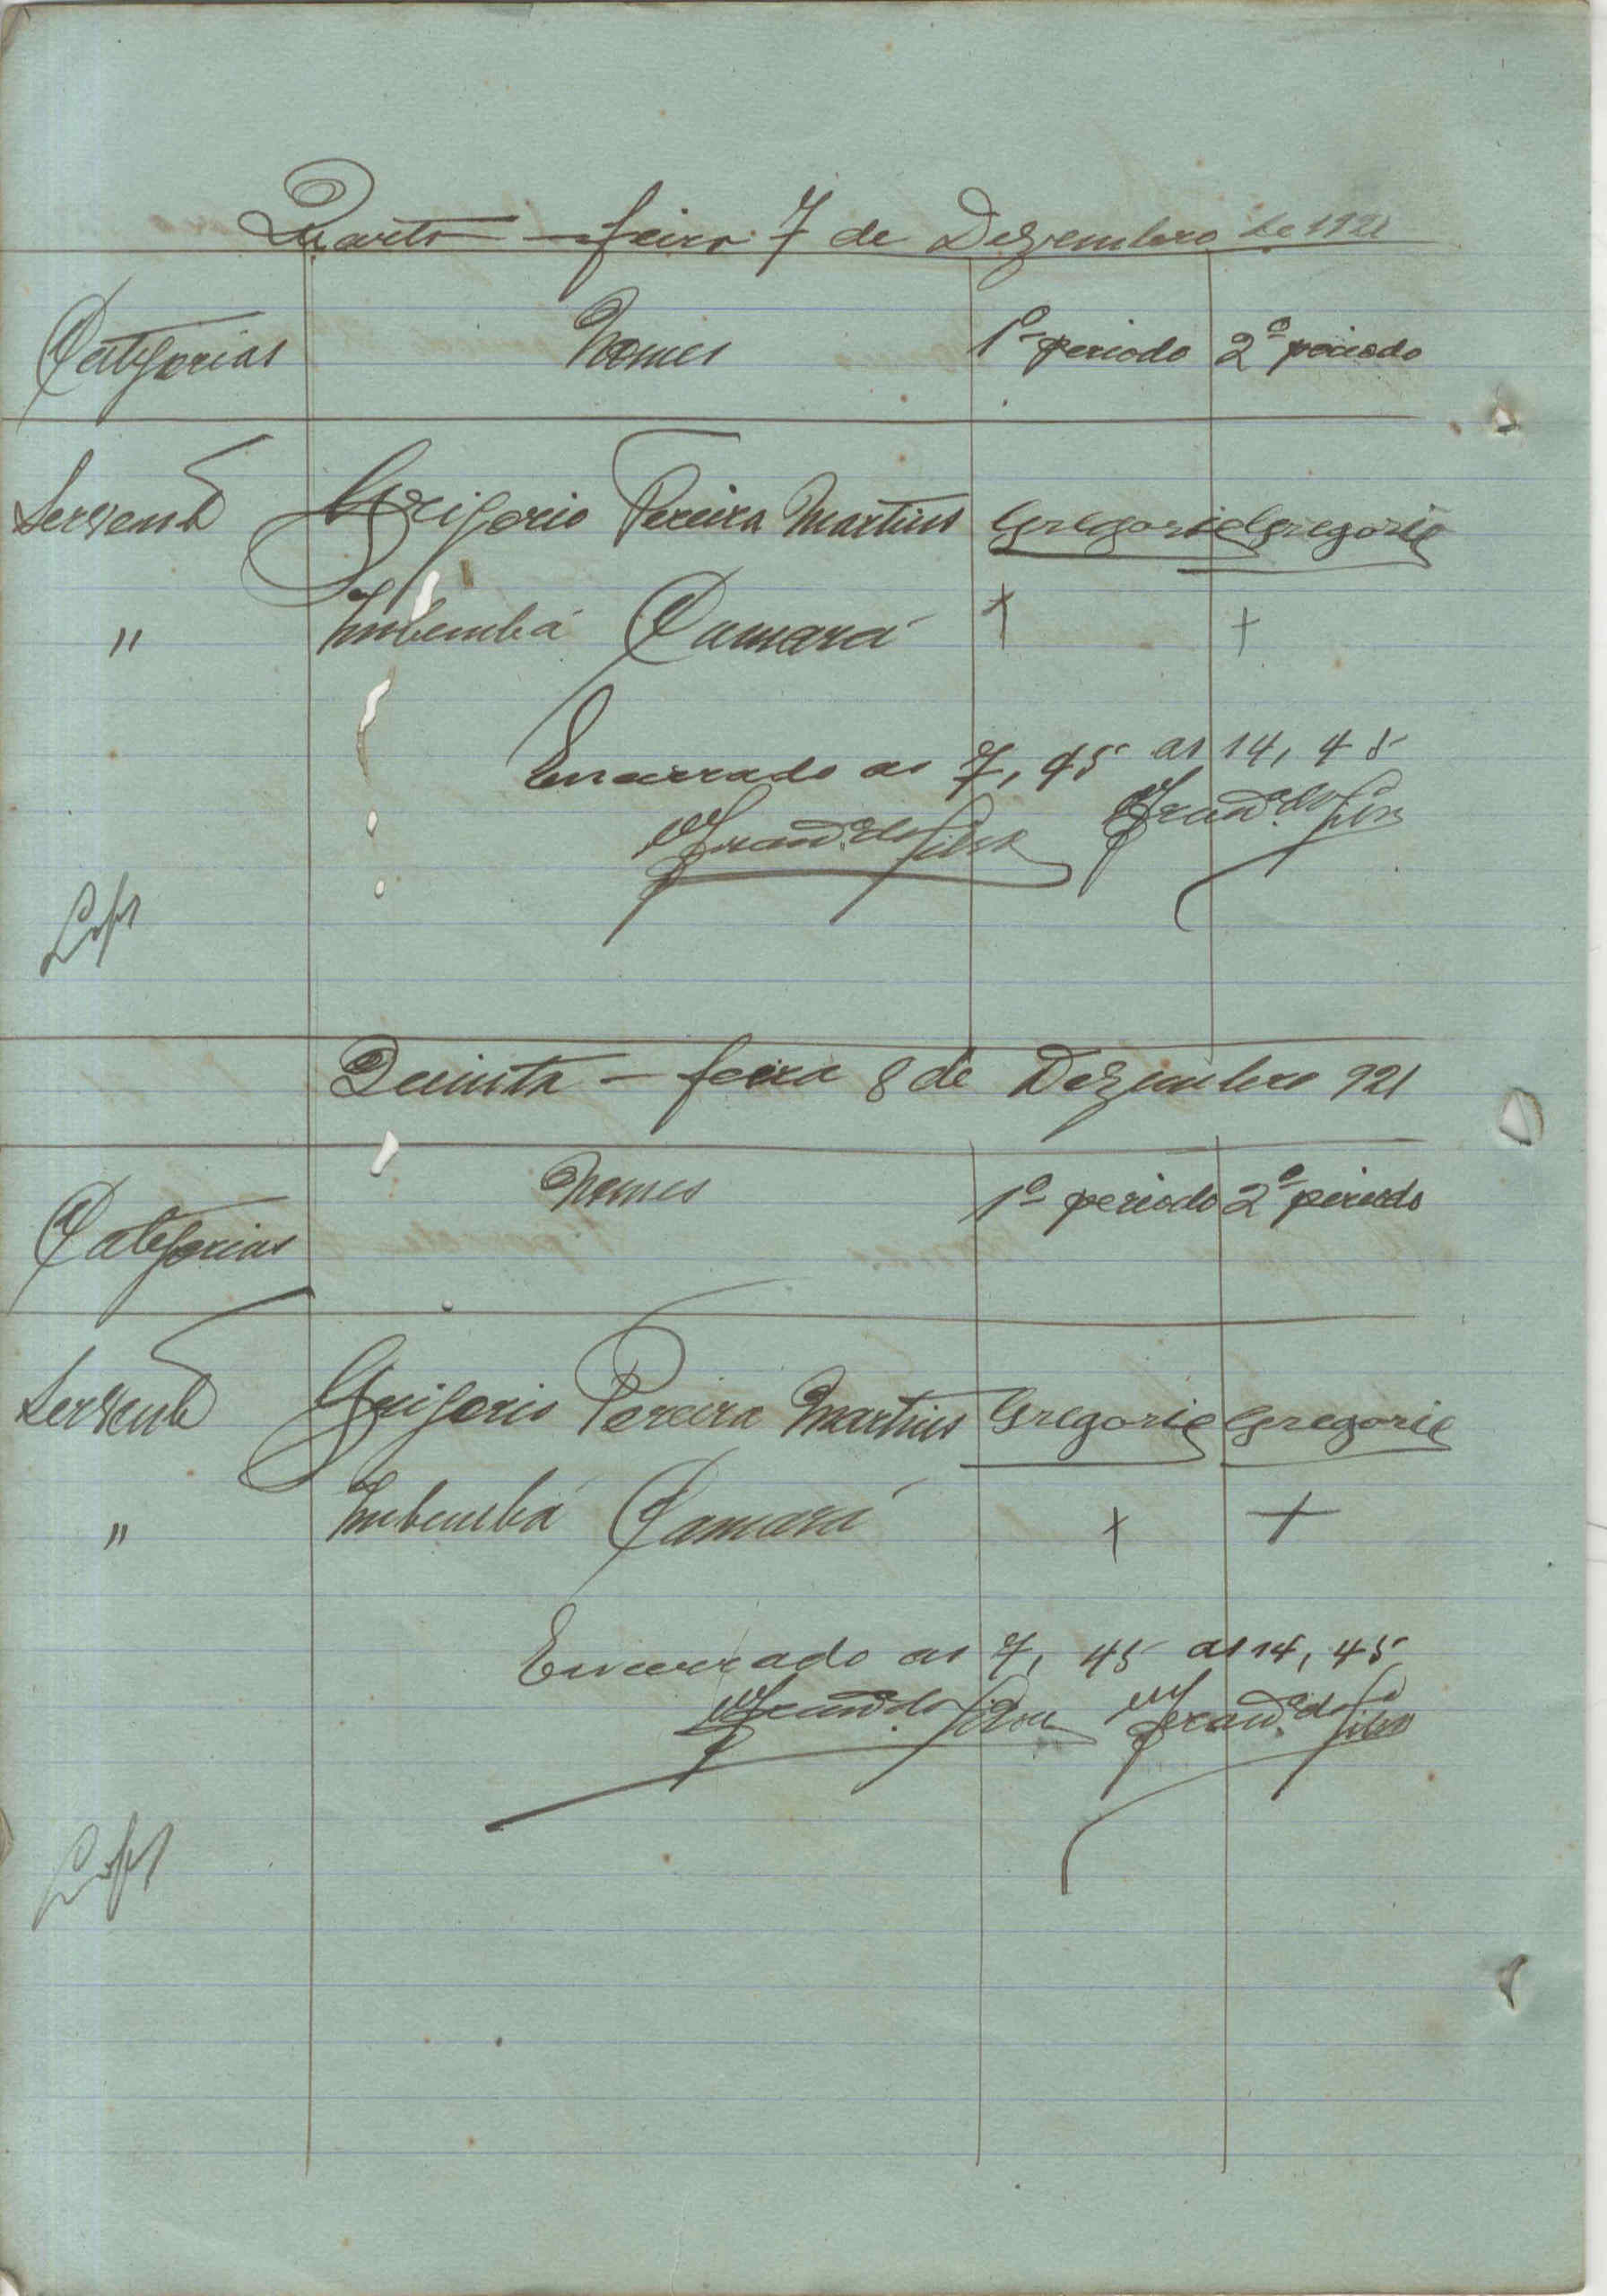 Quarta - feira 7 de Dezembro de 1921
Categorias Nomes 1º periodo 2º periodo
Servente Grigorio Pereira Martins Gregorio Gregorio
" Camará + +
Encerrado as 7,45 as 14,45
da Silva da Silva
Quinta - feira 8 de Dezembro 921
Nomes 1º periodo 2º periodo
Categorias
Servente Grigorio Pereira Martins Gregorio Gregorio
" Camará + +
Encerrado as 7,45 as 14,45
da Silva da Silva